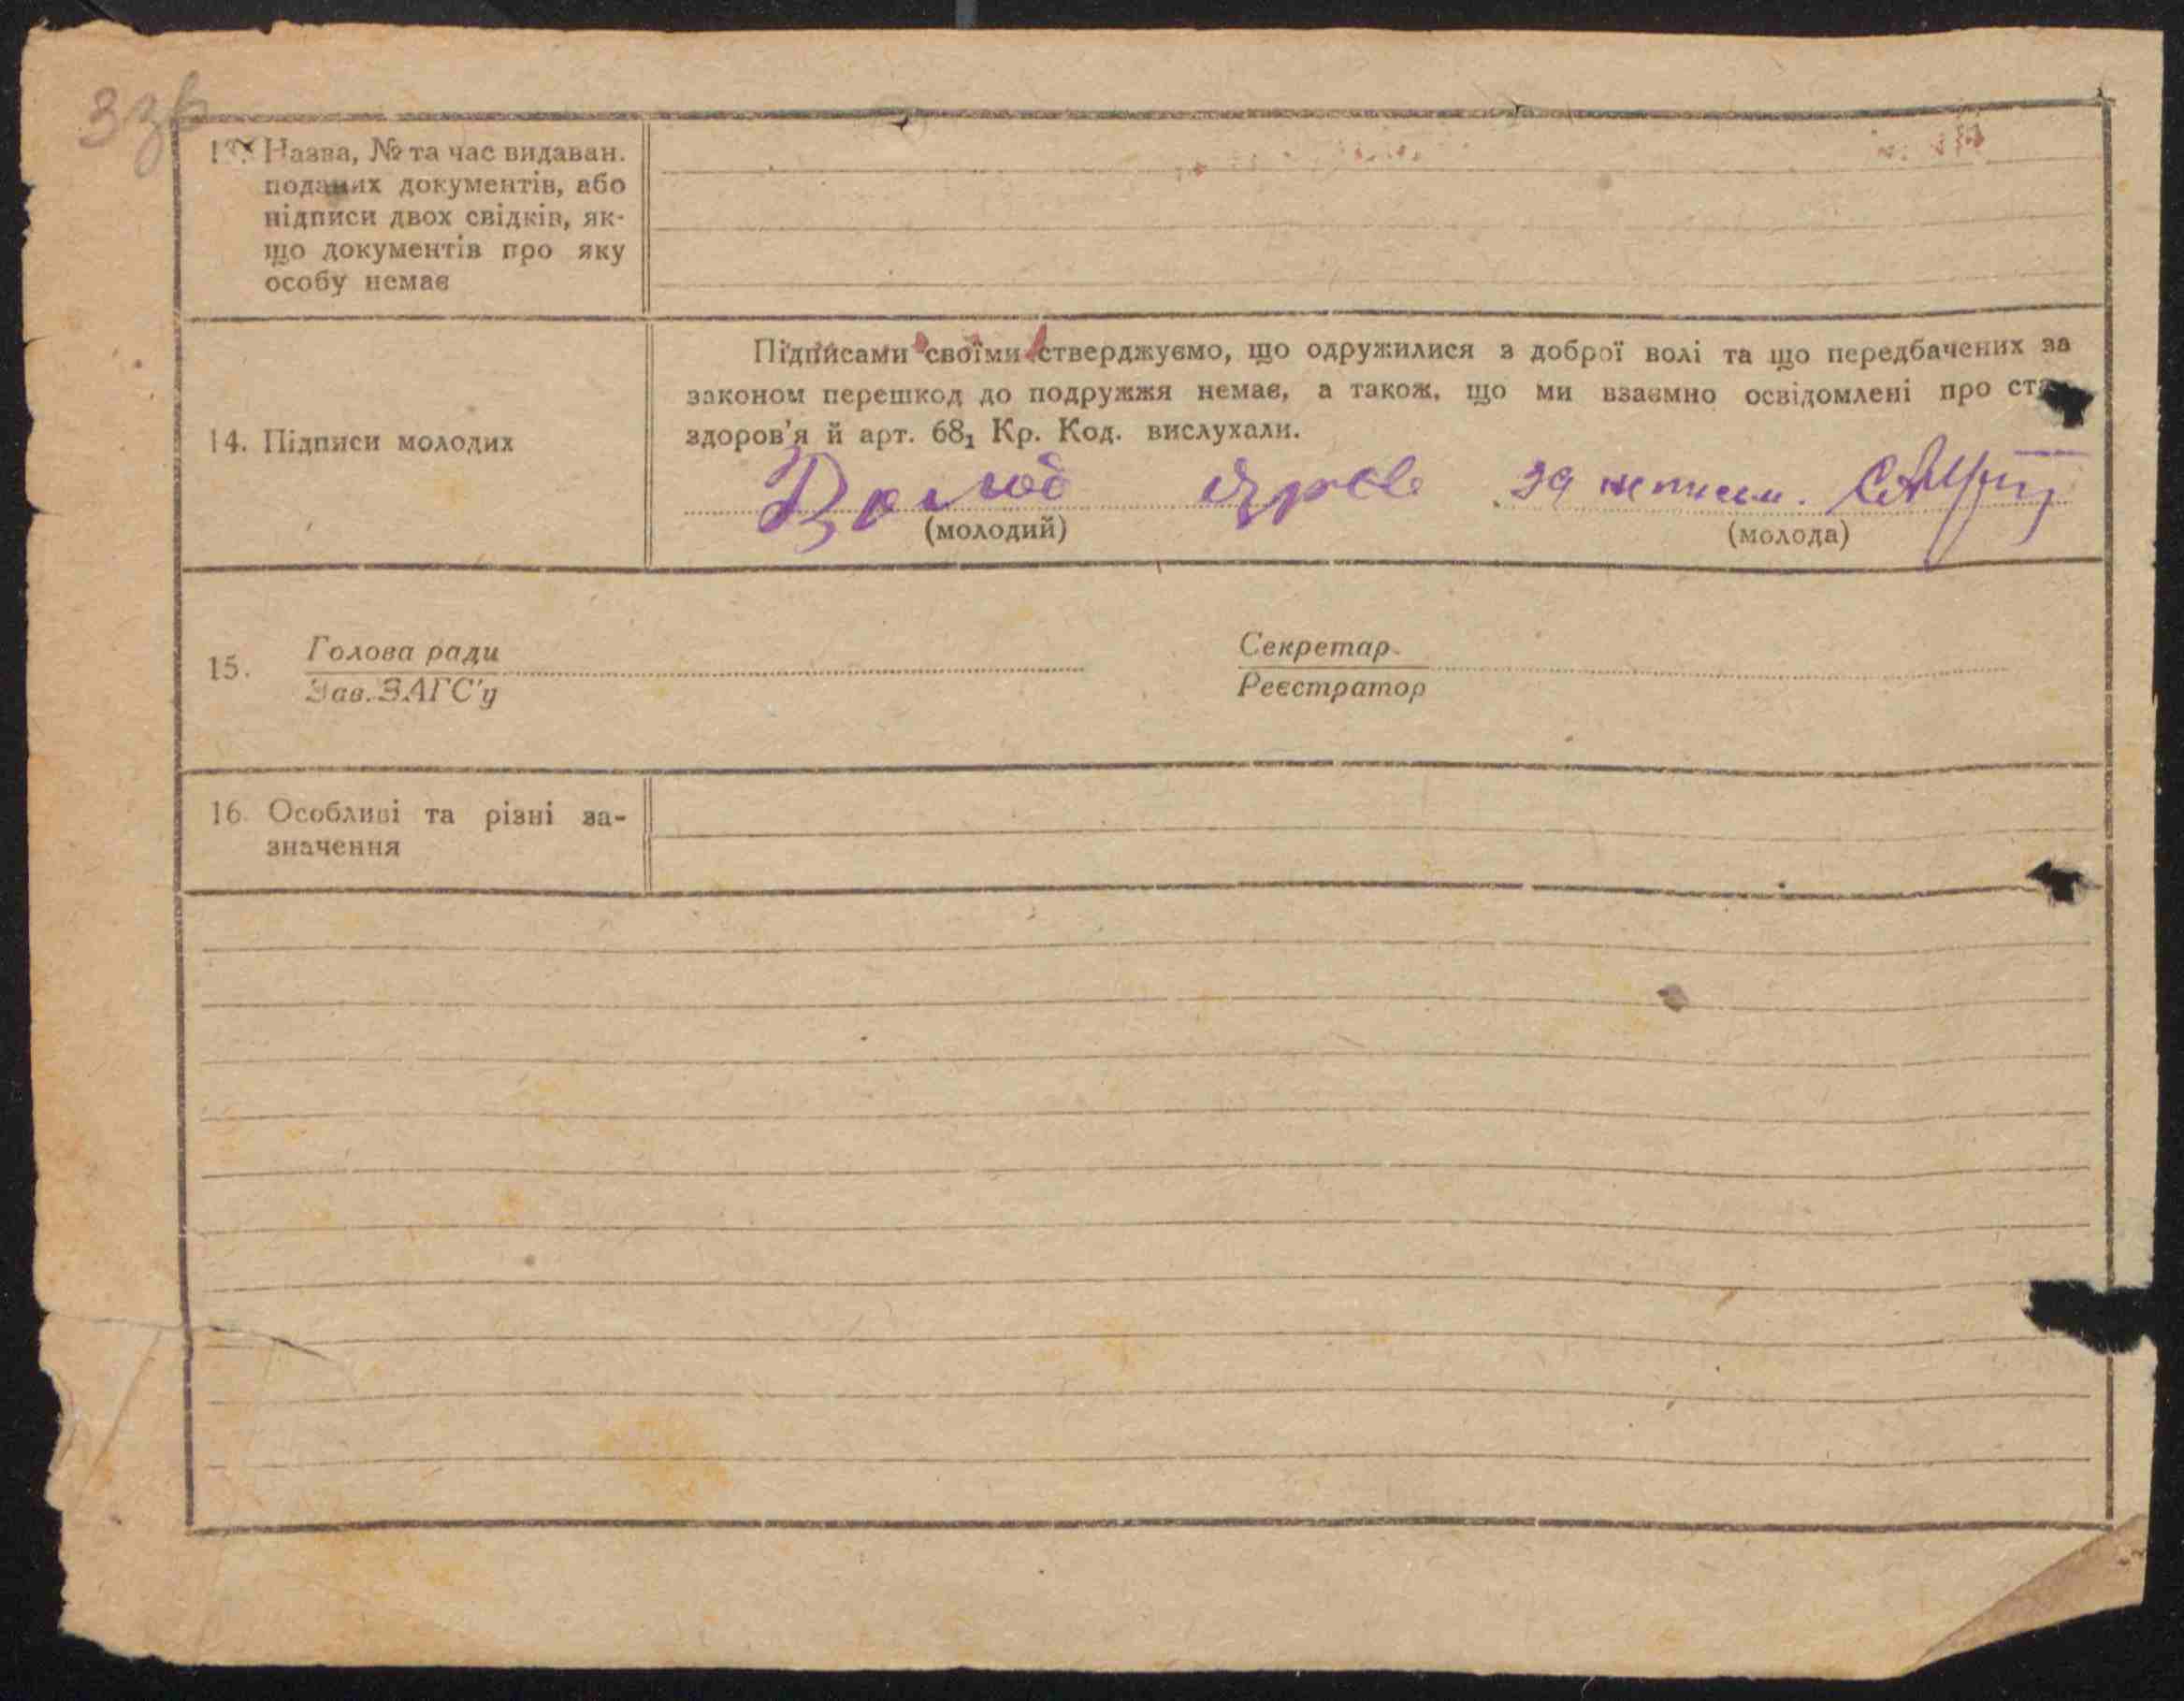 13. Назва, № та час видаван.
поданих документів, або
підписи двох свідків, як-
що документів про яку
особу немає
Підписами своїми стверджуємо, що одружилися з доброї волі та що передбачених за
законом перешкод до подружжя немає, а також, що ми взаємно освідомлені про ста
здоров'я й арт. 68₁ Кр. Код. вислухали.
14. Підписи молодих
за
(молодий)
(молода)
15.
Голова ради
Зав. ЗАГС'у
Секретар
Реєстратор
16. Особливі та різні за-
значення